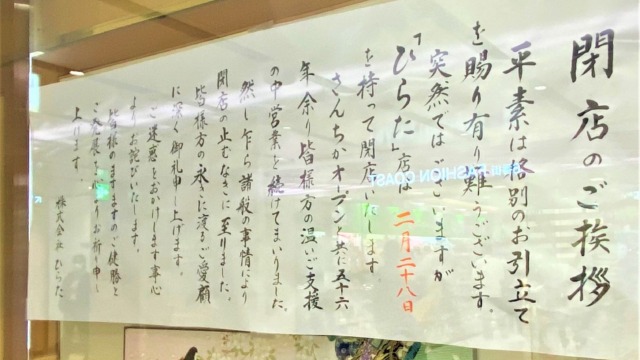 閉店のご挨拶
平素は格別のお引立て
を賜り有り難うございます。
突然ではございますが
「ひらた」店は 二月二十八日
を持って閉店いたします。
さんちかオープンと共に五十六
年余り皆様方の温いご支援
の中営業を続けてまいりました。
然し乍ら諸般の事情により
閉店の止むなきに至りました。
皆様方の永きに渡るご愛顧
に深く御礼申し上げます。
ご迷惑をおかけします事心
よりお詫びいたします。
皆様のますますのご健勝と
ご発展を心よりお祈り申し
上げます。
株式会社 ひらた
FASHION COAST